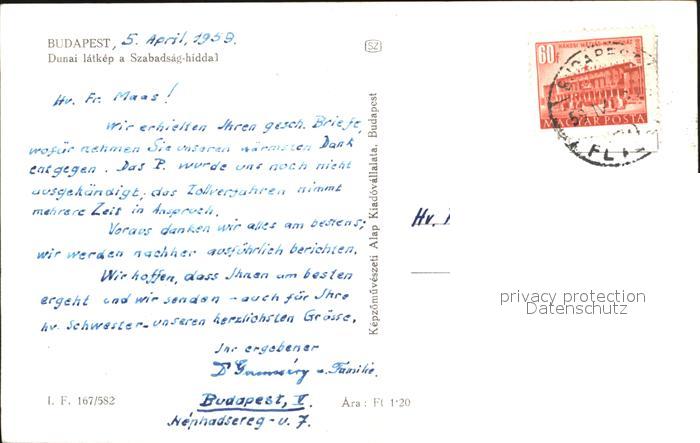 BUDAPEST, 5. April, 1959.
Dunai látkép a Szabadság-híddal
Hv. Fr. Maas!
Wir erhielten Ihren gesch. Briefe,
wofür nehmen Sie unseren wärmsten Dank
entgegen. Das P. wurde uns noch nicht
ausgekündigt, das Zollverfahren nimmt
mehrere Zeit in Anspruch.
Voraus danken wir alles am bestens;
wir werden nachher ausführlich berichten.
Wir hoffen, dass Ihnen am besten
ergeht und wir senden - auch für Ihre
hv. Schwester - unseren herzlichsten Grösse.
Ihr ergebener
u. Familie.
Budapest, V.
Néphadsereg-u. 7.
I. F. 167/582
Ára: Ft 1·20
Képzőművészeti Alap Kiadóvállalata, Budapest
SZ
60f
MAGYAR POSTA
BUDAPEST
Hv.
privacy protection
Datenschutz